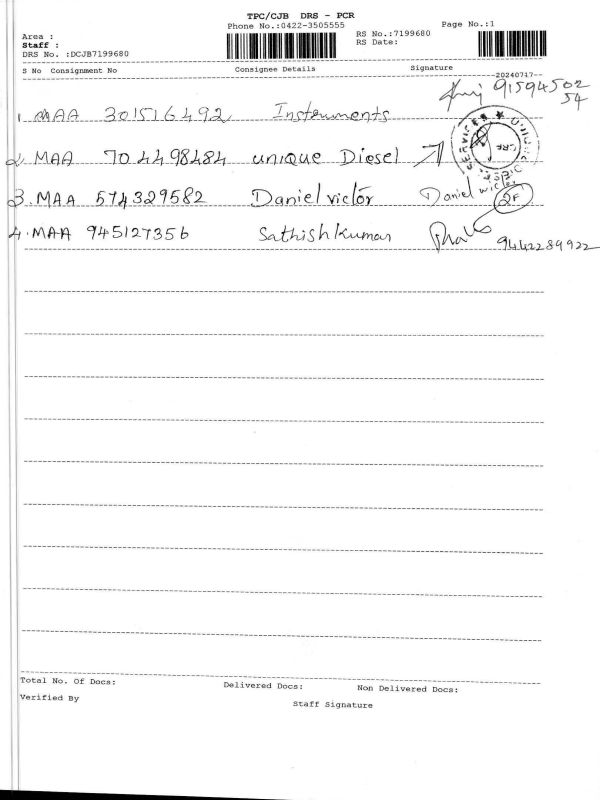 TPC/CJB DRS - PCR
Phone No.:0422-3505555
Page No.:1
Area :
Staff :
DRS No. :DCJB7199680
RS No.:7199680
RS Date:
S No Consignment No Consignee Details Signature
--20240717--
1. MAA 301516492 Instruments 91594502
54
2. MAA 704498484 unique Diesel
3. MAA 574329582 Daniel victor Daniel
2F
4. MAA 945127356 Sathish Kumar 9442289922
Total No. Of Docs: Delivered Docs: Non Delivered Docs:
Verified By
Staff Signature